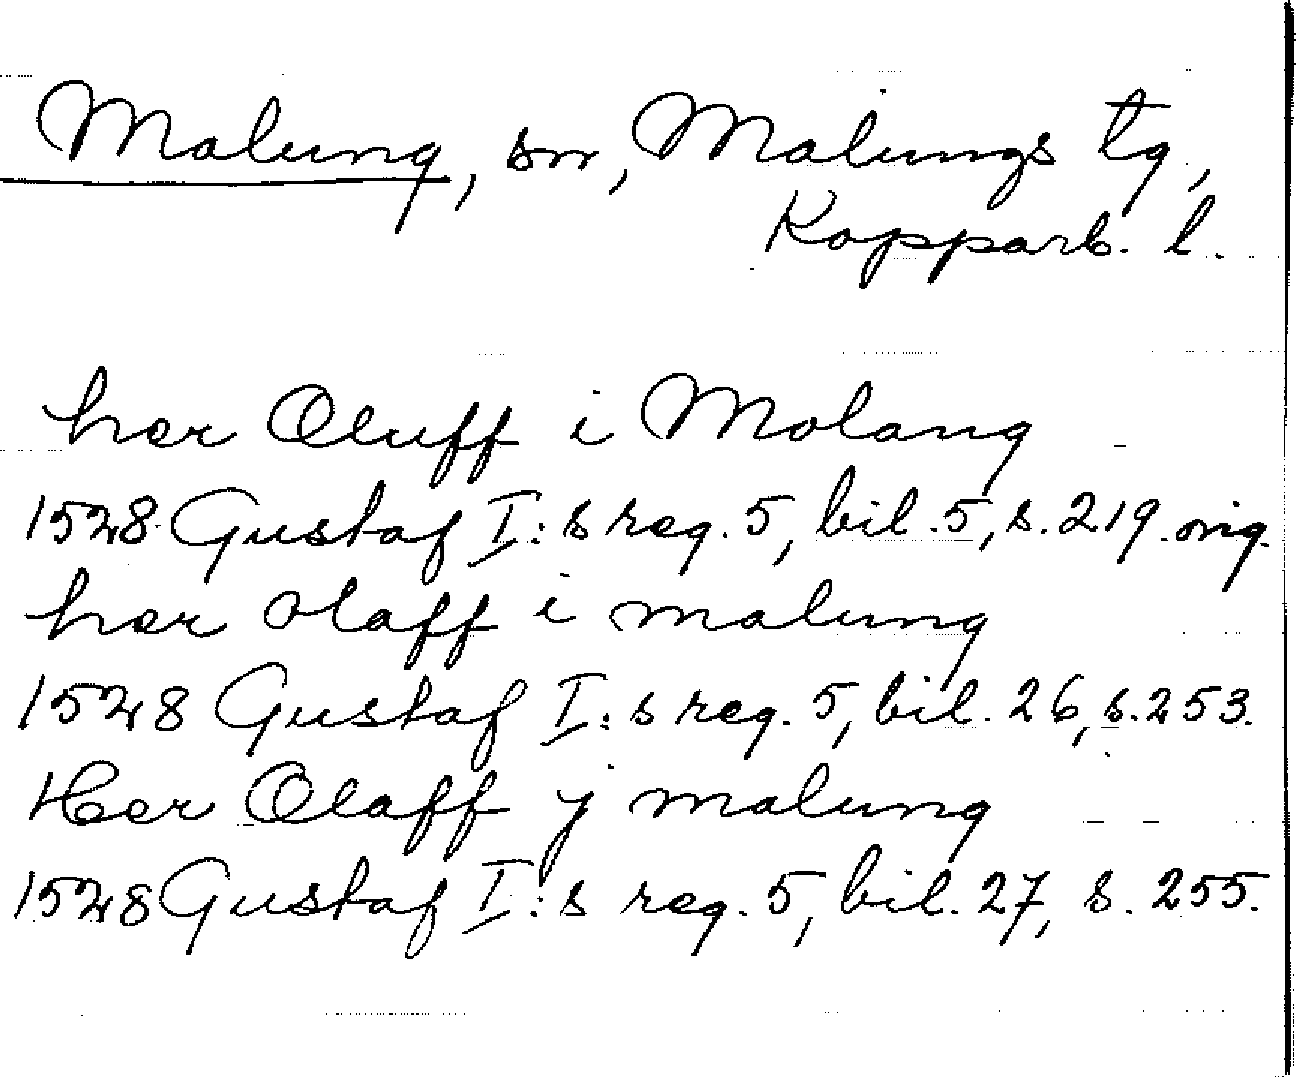 Malung, sn, Malungs tg,
Kopparb. l.
her Oluff i Molang
1528 Gustaf I:s reg. 5, bil. 5, s. 219. orig.
her olaff i malung
1528 Gustaf I:s reg. 5, bil. 26, s. 253.
Her Olaff j malung
1528 Gustaf I:s reg. 5, bil. 27, s. 255.